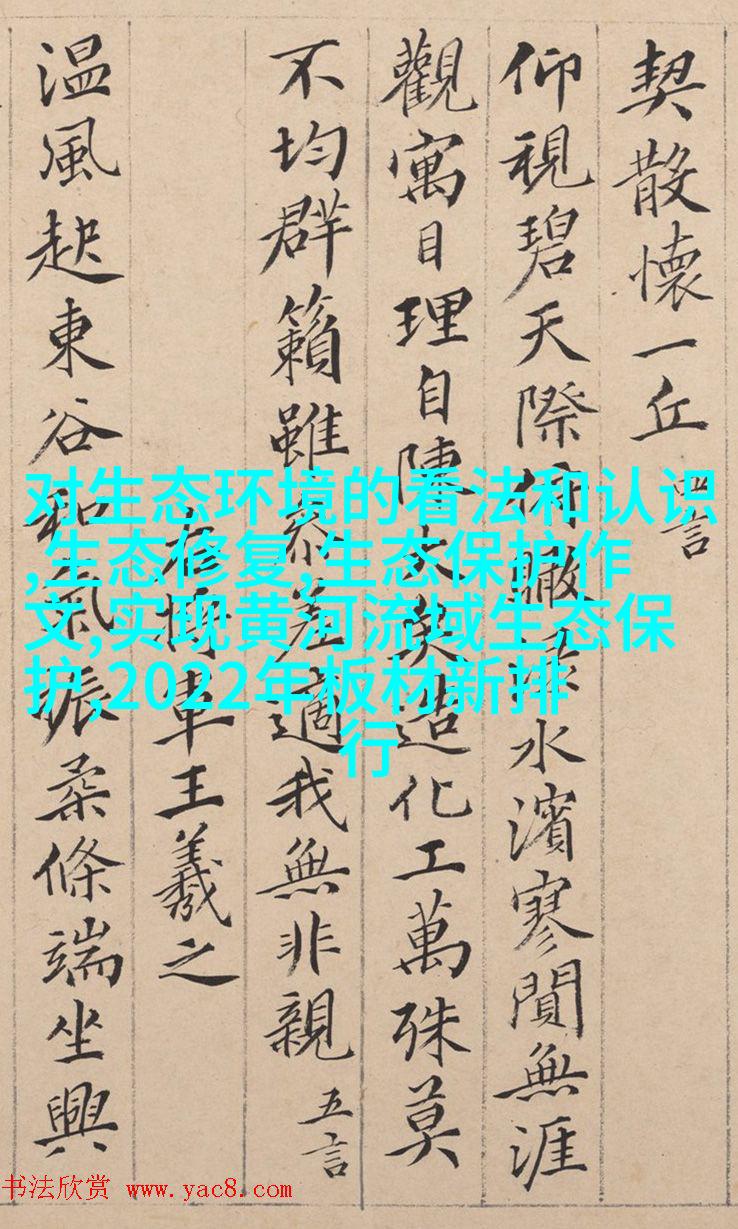 契散懷一丘 四言
仰視碧天際俯瞰淥水濱寥閴無涯
觀寓目理自陳大矣造化工萬殊莫
不均群籟雖參差適我無非親 五言
右將軍王羲之
温風起東谷和氣振柔條端坐興
对生态环境的看法和认识
,生态修复,生态保护作
文,实现黄河流域生态保
护,2022年板材新排
行
书法欣赏 www.yac8.com